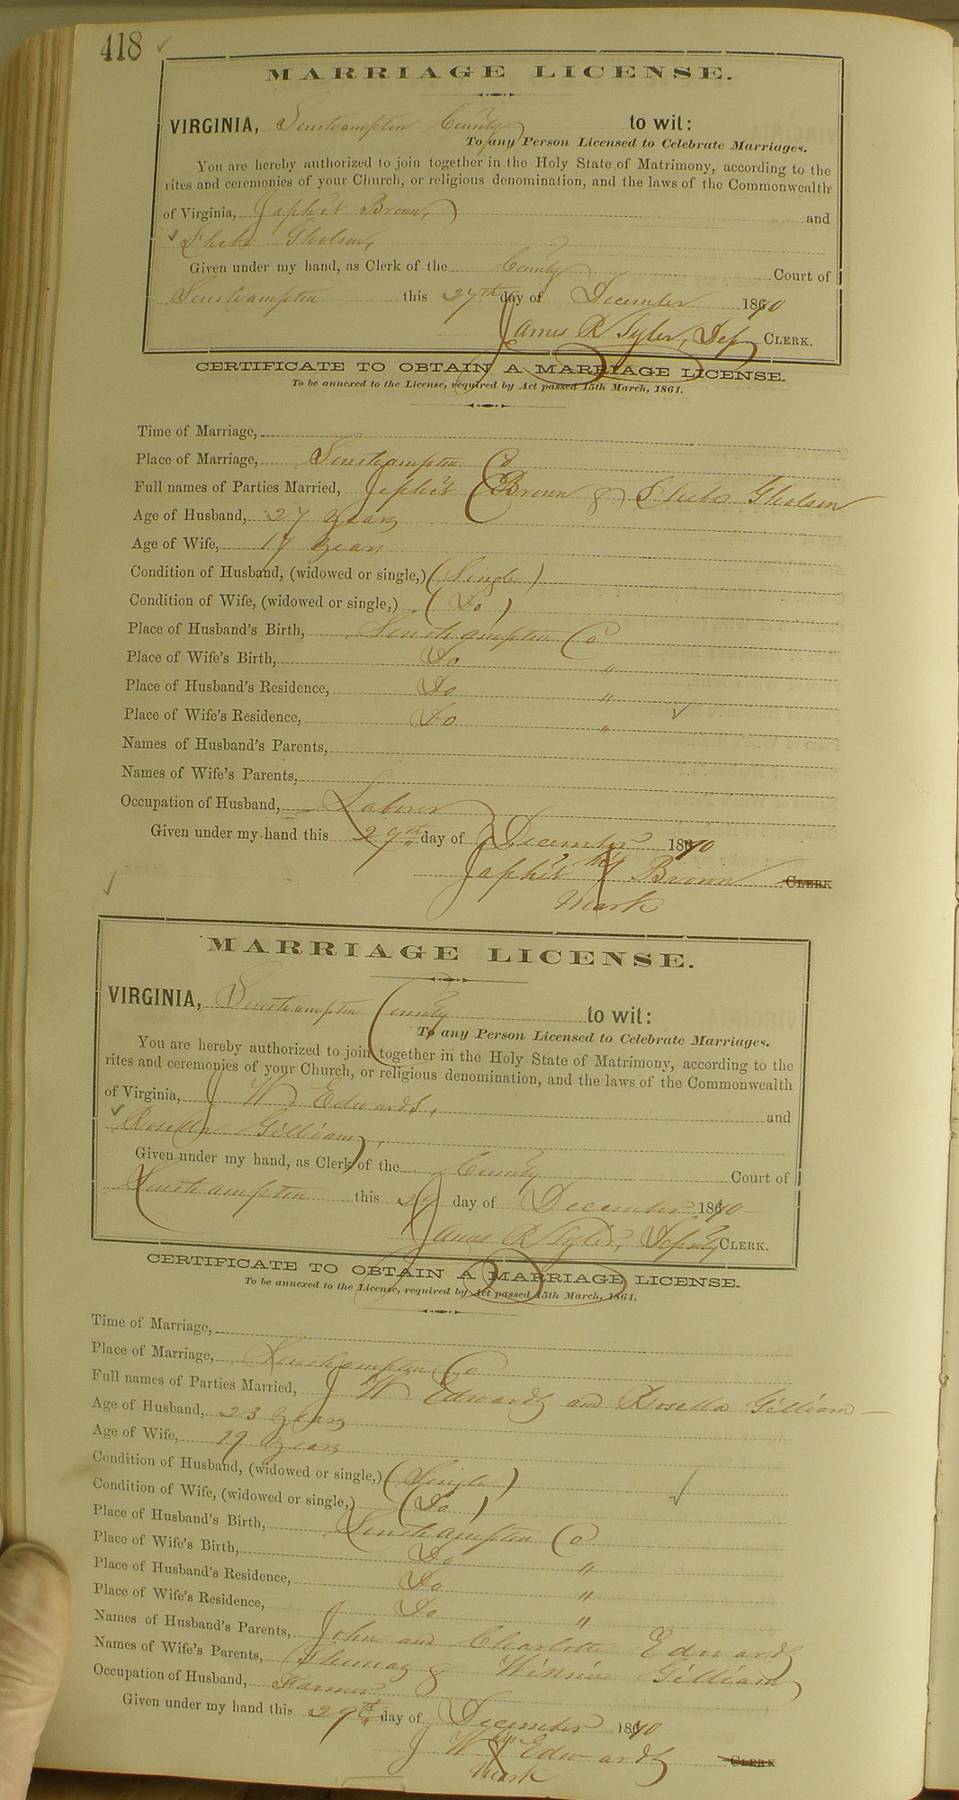 418
MARRIAGE LICENSE.
VIRGINIA, Southampton County to wit:
To any Person Licensed to Celebrate Marriages.
You are hereby authorized to join together in the Holy State of Matrimony, according to the
rites and ceremonies of your Church, or religious denomination, and the laws of the Commonwealth
of Virginia, Japhet Brown, and
Gholson,
Given under my hand, as Clerk of the County Court of
Southampton this day of December 1870
James R Tyler, Dep CLERK.
CERTIFICATE TO OBTAIN A MARRIAGE LICENSE.
To be annexed to the License, required by Act passed 15th March, 1861.
Time of Marriage,
Place of Marriage, Southampton Co
Full names of Parties Married, Japhet Brown & Gholson
Age of Husband, 27 years
Age of Wife, 17 years
Condition of Husband, (widowed or single,) (Single)
Condition of Wife, (widowed or single,) (Do)
Place of Husband's Birth, Southampton Co
Place of Wife's Birth, Do "
Place of Husband's Residence, Do "
Place of Wife's Residence, Do "
Names of Husband's Parents,
Names of Wife's Parents,
Occupation of Husband, Laborer
Given under my hand this 29th day of December 1870
Japhet X Brown CLERK
mark
MARRIAGE LICENSE.
VIRGINIA, Southampton County to wit:
To any Person Licensed to Celebrate Marriages.
You are hereby authorized to join together in the Holy State of Matrimony, according to the
rites and ceremonies of your Church, or religious denomination, and the laws of the Commonwealth
of Virginia, J W Edwards, and
Rosella Gilliam,
Given under my hand, as Clerk of the County Court of
Southampton this 29 day of December 1870
James R Tyler, Deputy CLERK.
CERTIFICATE TO OBTAIN A MARRIAGE LICENSE.
To be annexed to the License, required by Act passed 15th March, 1861.
Time of Marriage,
Place of Marriage, Southampton Co
Full names of Parties Married, J W Edwards and Rosella Gilliam
Age of Husband, 23 years
Age of Wife, 19 years
Condition of Husband, (widowed or single,) (Single)
Condition of Wife, (widowed or single,) (Do)
Place of Husband's Birth, Southampton Co
Place of Wife's Birth, Do "
Place of Husband's Residence, Do "
Place of Wife's Residence, Do "
Names of Husband's Parents, John and Charlotte Edwards
Names of Wife's Parents, Thomas & Winnie Gilliam
Occupation of Husband, Farmer
Given under my hand this 29th day of December 1870
J W X Edwards CLERK
mark